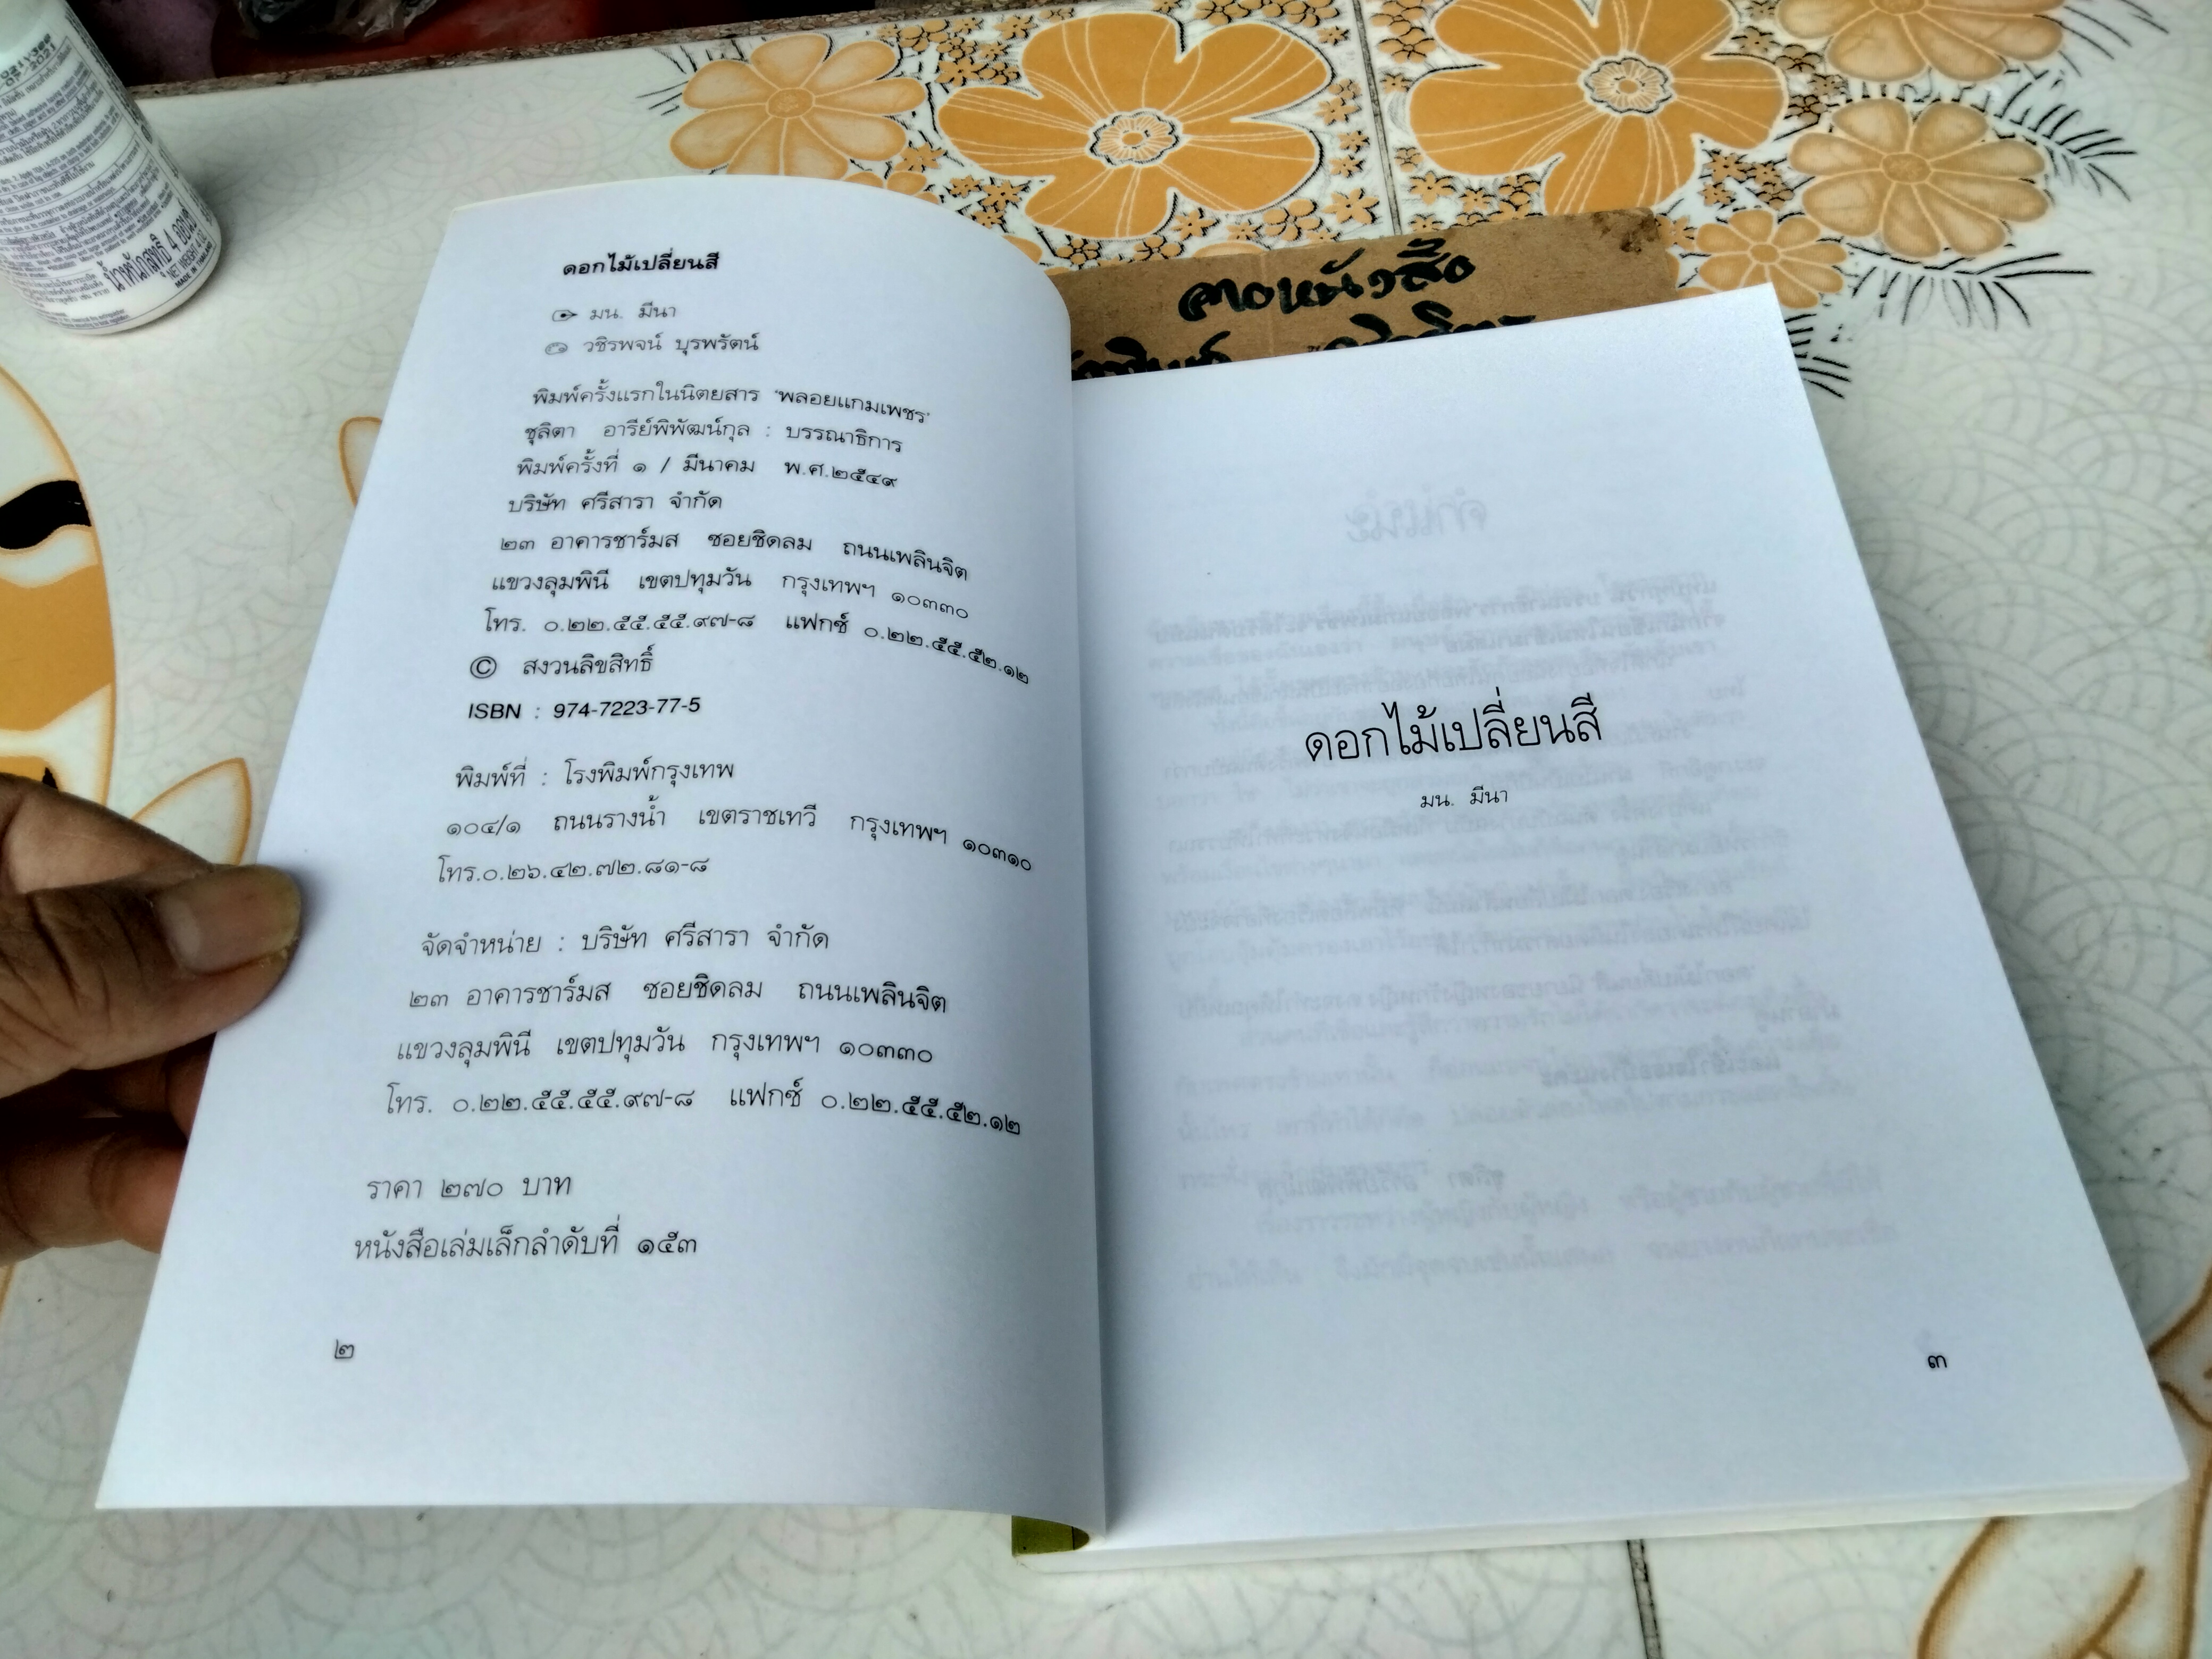 ดอกไม้เปลี่ยนสี
มน. มีนา
วชิรพจน์ บุรพรัตน์
พิมพ์ครั้งแรกในนิตยสาร "พลอยแกมเพชร"
ชุลิตา อารีย์พิพัฒน์กุล : บรรณาธิการ
พิมพ์ครั้งที่ ๑ / มีนาคม พ.ศ.๒๕๔๙
บริษัท ศรีสารา จำกัด
๒๓ อาคารชาร์มส ซอยชิดลม ถนนเพลินจิต
แขวงลุมพินี เขตปทุมวัน กรุงเทพฯ ๑๐๓๓๐
โทร. ๐.๒๒.๕๕.๕๕.๙๗-๘ แฟกซ์ ๐.๒๒.๕๕.๕๒.๑๒
© สงวนลิขสิทธิ์
ISBN : 974-7223-77-5
พิมพ์ที่ : โรงพิมพ์กรุงเทพ
๑๐๔/๑ ถนนรางน้ำ เขตราชเทวี กรุงเทพฯ ๑๐๓๑๐
โทร.๐.๒๖.๔๒.๗๒.๘๑-๘
จัดจำหน่าย : บริษัท ศรีสารา จำกัด
๒๓ อาคารชาร์มส ซอยชิดลม ถนนเพลินจิต
แขวงลุมพินี เขตปทุมวัน กรุงเทพฯ ๑๐๓๓๐
โทร. ๐.๒๒.๕๕.๕๕.๙๗-๘ แฟกซ์ ๐.๒๒.๕๕.๕๒.๑๒
ราคา ๒๗๐ บาท
หนังสือเล่มเล็กลำดับที่ ๑๕๓
๒
ดอกไม้เปลี่ยนสี
มน. มีนา
๓
น้ำหนักสุทธิ 4 ออนซ์
NET WEIGHT 4 OZ.
MADE IN THAILAND